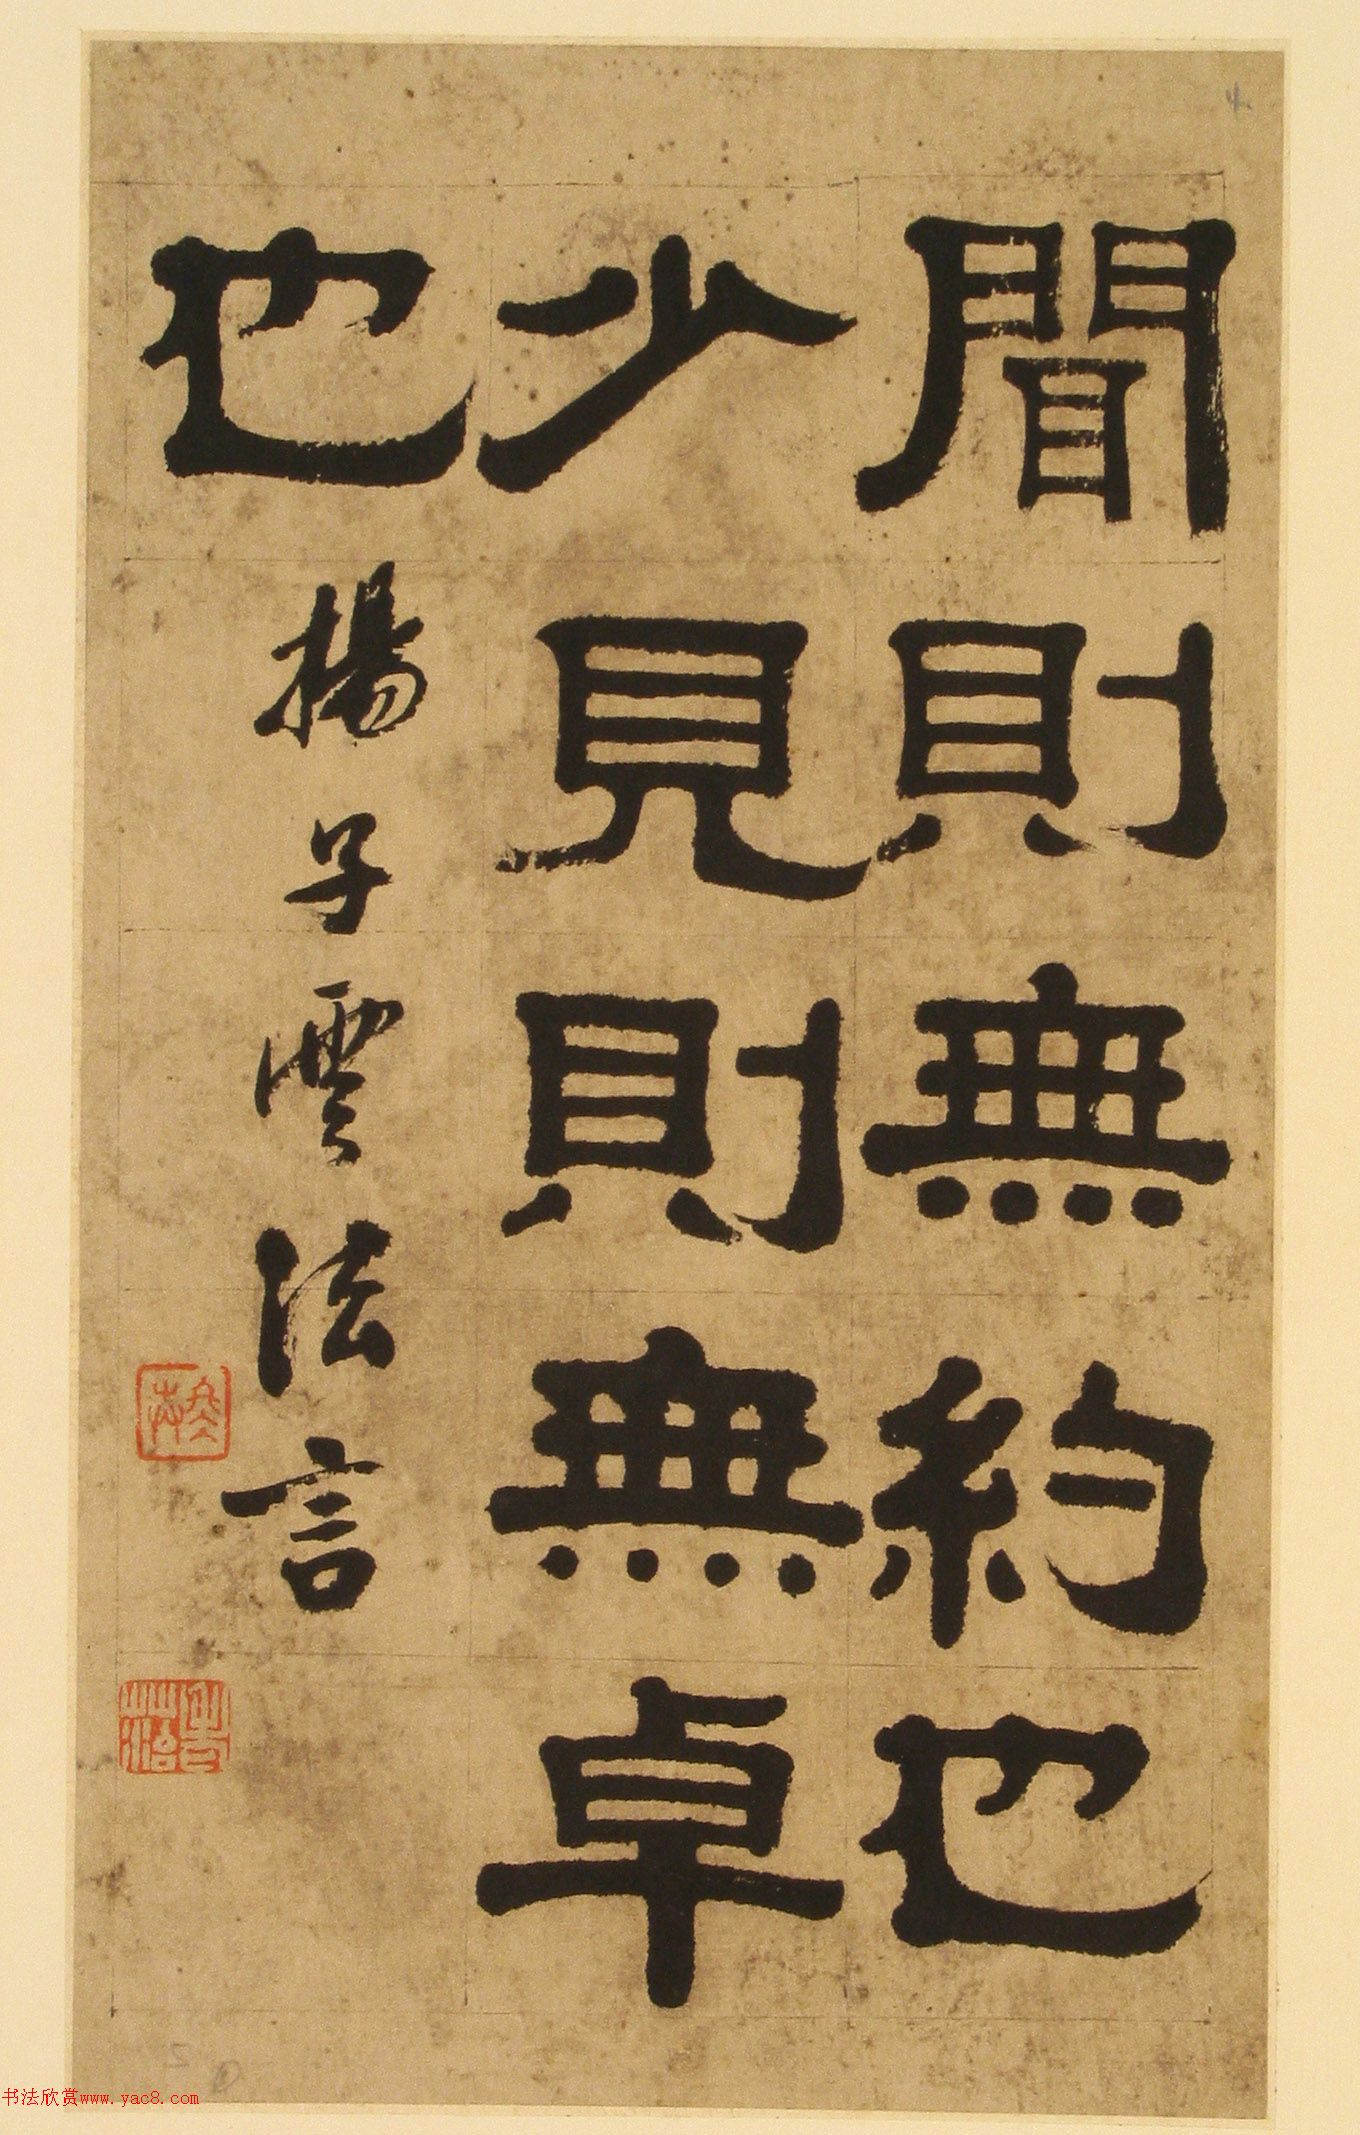 聞則無約也
少見則無卓
也
揚子雲法言
书法欣赏www.yac8.com